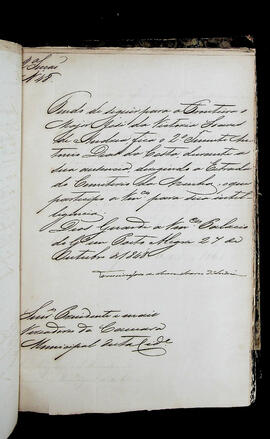 2ª Secção
N. 45.
Tendo de seguir para a Fronteira o
Major José da Victoria Soares
de Andrea fica o 2º Tenente An-
tonio Dias da Costa, durante a
sua ausencia, dirigindo a Estrada
do Cemiterio da Azenha, o que
participo a Vm.ces para sua intel-
ligencia.
Deos Guarde a Vm.ces Palacio
do Gov. em Porto Alegre 27 de
Outubro de 1848
Senr.es Presidente e mais
Vereadores da Camara
Municipal desta Cid.e